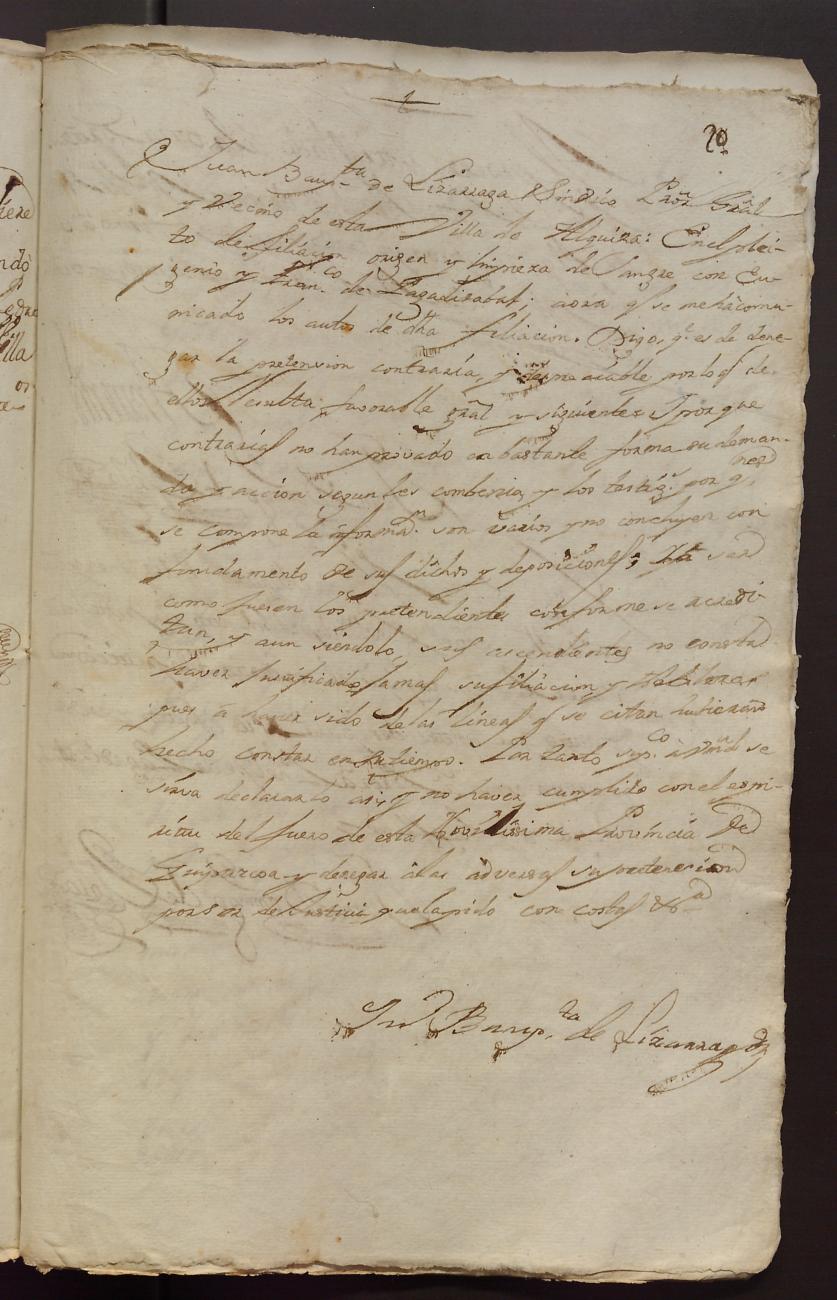 20
Juan Bauptta de Lizarraga Sindico Prõr Grãl
y Vecino de esta Villa de Alquiza: En el plei-
to de filiacion origen y limpieza de Sangre con Eu-
genio y Fran.co de Lagadizabal; aora q se me hà comu-
nicado los autos de dtã filiacion. Digo, q.e es de dene-
gar la pretension contraria, y despreciable por lo q de
ellos resulta favorable grãl y siguiente. Y por que
contrarias no han provado en bastante forma su deman-
da y accion segun les combenia, y los testig.s por q.nes
se compone la informaõn son varios y no concluyen con
fundamento de sus dichos y deposiciones; Ya sea
como fuesen los pretendientes conforme se acredi-
tan, y aun siendolo, sus ascendientes no consta
haver justificado jamas su filiacion y
pues à haver sido de las lineas q se citan hubieran
hecho constar en su tiempo. Por tanto sup.co à Vmd se
sirva declararlo asi, y no haver cumplido con el espi-
ritu del fuero de esta Novilissima Provincia de
Guipuzcoa y denegar à las adversas su pretension
por ser de Justicia que la pido con costas &.a
Jun Baup.ta de Lizarraga